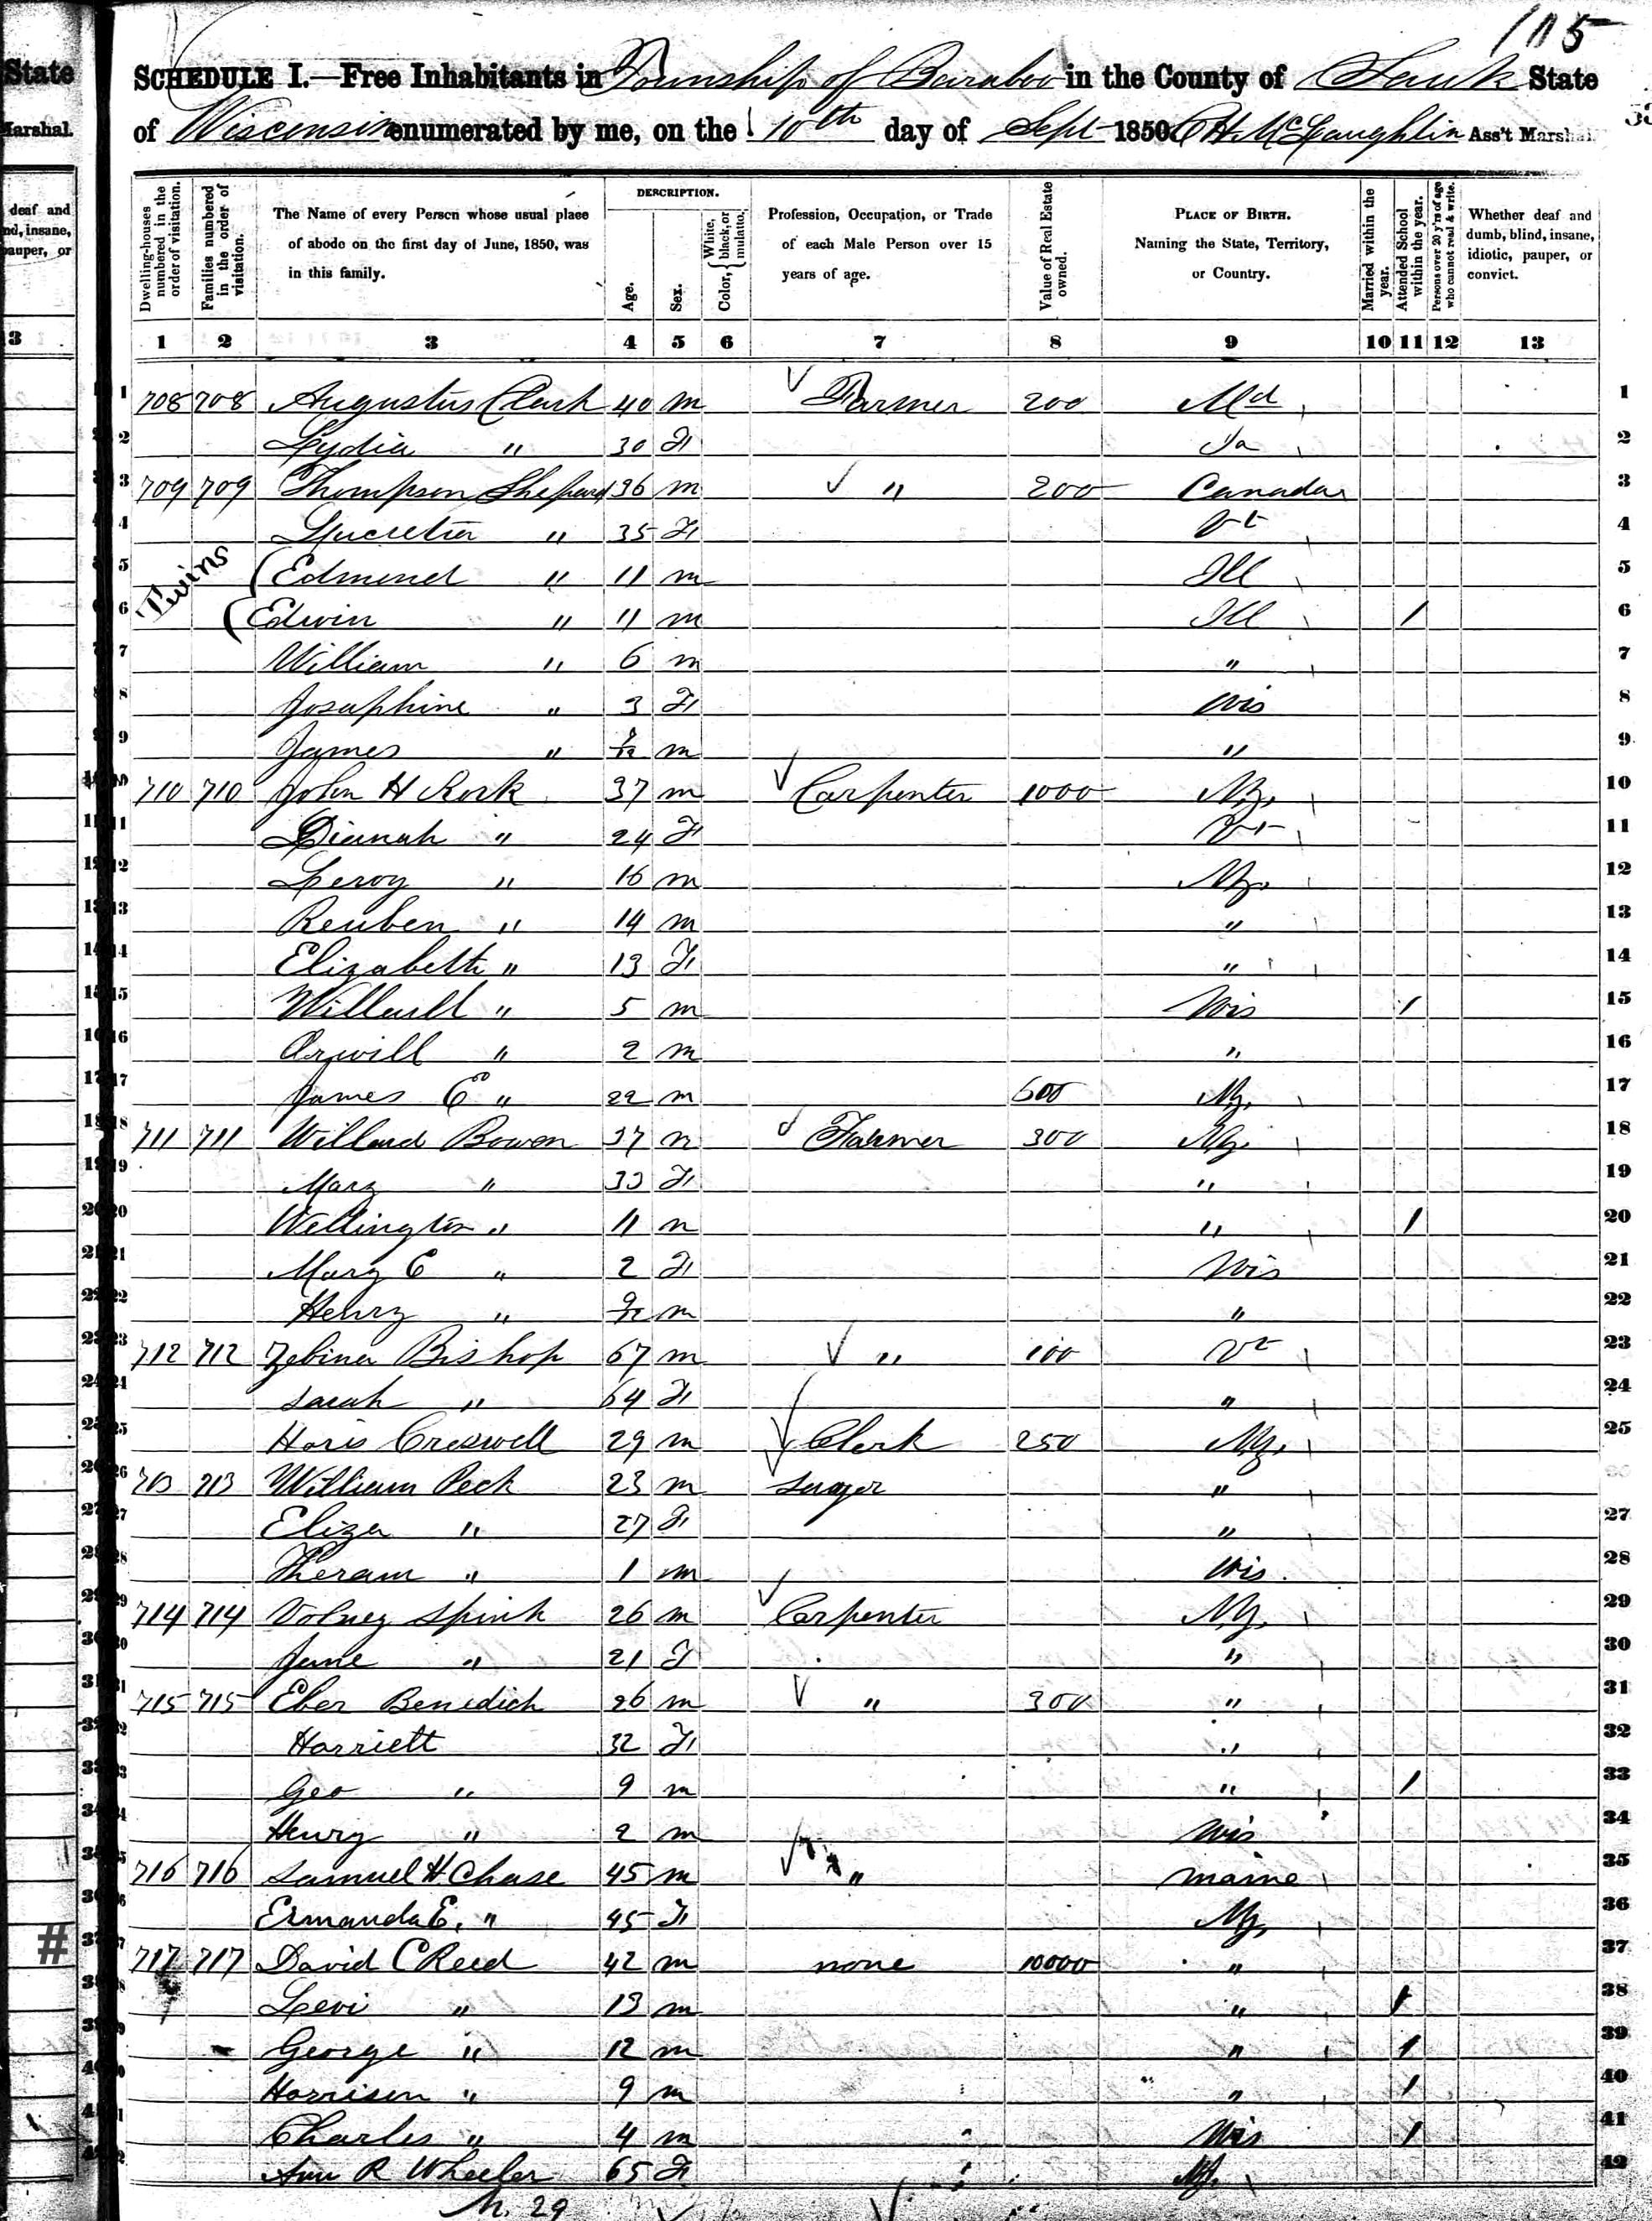 105
SCHEDULE I.—Free Inhabitants in Township of Baraboo in the County of Sauk State
of Wisconsin enumerated by me, on the 10th day of Sept 1850. C H McLaughlin Ass't Marshal.
State
Marshal.
deaf and
nd, insane,
pauper, or
Dwelling-houses numbered in the order of visitation.
Families numbered in the order of visitation.
The Name of every Person whose usual place of abode on the first day of June, 1850, was in this family.
DESCRIPTION.
Age.
Sex.
Color, { White, black, or mulatto.
Profession, Occupation, or Trade of each Male Person over 15 years of age.
Value of Real Estate owned.
PLACE OF BIRTH. Naming the State, Territory, or Country.
Married within the year.
Attended School within the year.
Persons over 20 y'rs of age who cannot read & write.
Whether deaf and dumb, blind, insane, idiotic, pauper, or convict.
1 2 3 4 5 6 7 8 9 10 11 12 13
1 708 708 Augustus Clark 40 m Farmer 200 Md 1
2 Lydia " 30 F 2
3 709 709 Thompson Shepard 36 m " 200 Canada 3
4 Lucretia " 35 F Vt 4
Twins
5 Edmund " 11 m Ill 5
6 Edwin " 11 m Ill / 6
7 William " 6 m " 7
8 Josephine " 3 F Wis 8
9 James " m " 9
10 710 710 John H Rork 37 m Carpenter 1000 N.Y. 10
11 Dianah " 24 F Vt 11
12 Leroy " 16 m N.Y. 12
13 Reuben " 14 m " 13
14 Elizabeth " 13 F " 14
15 Willard " 5 m Wis / 15
16 Orwill " 2 m " 16
17 James E " 22 m 600 N.Y. 17
18 711 711 Willard Bowen 37 m Farmer 300 N.Y. 18
19 Mary " 33 F " 19
20 Wellington " 11 m " / 20
21 Mary E " 2 F Wis 21
22 Henry " 9/12 m " 22
23 712 712 Zebina Bishop 67 m " 100 Vt 23
24 Sarah " 64 F " 24
25 Haris Creswell 29 m Clerk 250 N.Y. 25
26 713 713 William Peck 23 m " 26
27 Eliza " 27 F " 27
28 Theram " 1 m Wis 28
29 714 714 Volney Spink 26 m Carpenter N.Y. 29
30 Jane " 21 F " 30
31 715 715 Eber Benedich 26 m " 300 " 31
32 Harriett 32 F " 32
33 Geo " 9 m " / 33
34 Henry " 2 m Wis 34
35 716 716 Samuel H Chase 45 m " Maine 35
36 Ermanda E. " 45 F N.Y. 36
# 37 717 717 David C Reed 42 m none 10000 " 37
38 Levi " 13 m " / 38
39 George " 12 m " / 39
40 Harrison " 9 m " / 40
41 Charles " 4 m Wis / 41
42 Ann R Wheeler 65 F N.Y. 42
M. 29